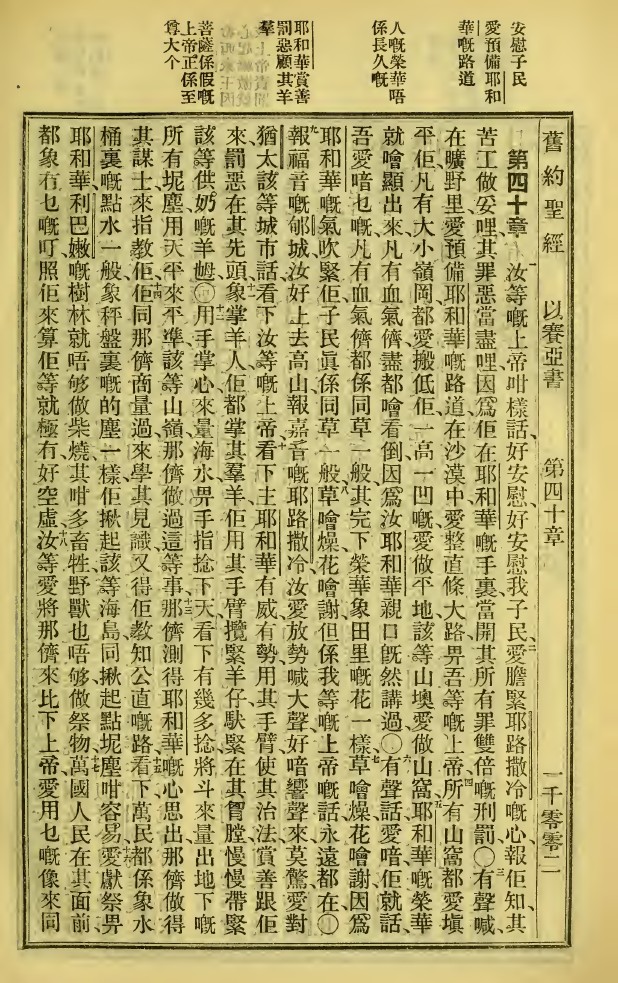 安慰子民
愛預備耶和
華嘅路道
人嘅榮華唔
係長久嘅
耶和華賞善
罰惡顧其羊
羣
菩薩係假嘅
上帝正係至
尊大个
舊約聖經 以賽亞書 第四十章 一千零零二
第四十章 一汝等嘅上帝咁樣話好安慰好安慰我子民二愛膽緊耶路撒冷嘅心報佢知其
苦工做妥哩其罪惡當盡哩因爲佢在耶和華嘅手裏當開其所有罪雙倍嘅刑罰〇三有聲喊
在曠野里愛預備耶和華嘅路道在沙漠中愛整直條大路畀吾等嘅上帝四所有山窩都愛塡
平佢凡有大小嶺岡都愛搬低佢一高一凹嘅愛做平地該等山墺愛做山窩五耶和華嘅榮華
就噲顯出來凡有血氣儕盡都噲看倒因爲汝耶和華親口旣然講過〇六有聲話愛喑佢就話
吾愛喑乜嘅凡有血氣儕都係同草一般其完下榮華象田里嘅花一樣七草噲燥花噲謝因爲
耶和華嘅氣吹緊佢子民眞係同草一般八草噲燥花噲謝但係我等嘅上帝嘅話永遠都在〇
九報福音嘅郇城汝好上去高山報嘉音嘅耶路撒冷汝愛放勢喊大聲好喑響聲來莫驚愛對
猶太該等城市話看下汝等嘅上帝十看下主耶和華有威有勢用其手臂使其治法賞善跟佢
來罰惡在其先頭十一象掌羊人佢都掌其羣羊佢用其手臂攬緊羊仔馱緊在其胷膛慢慢帶緊
該等供奶嘅羊𡜵〇十二用手掌心來量海水畀手指捻下天看下有幾多捻將斗來量出地下嘅
所有坭塵用天平來平準該等山嶺那儕做過這等事十三那儕測得耶和華嘅心思出那儕做得
其謀士來指教佢十四佢同那儕商量過來學其見識又得佢教知公直嘅路十五看下萬民都係象水
桶裏嘅點水一般象秤盤裏嘅的塵一樣佢揪起該等海島同揪起點坭塵咁容易十六愛獻祭畀
耶和華利巴嫩嘅樹林就唔够做柴燒其咁多畜牲野獸也唔够做祭物十七萬國人民在其面前
都象冇乜嘅叮照佢來算佢等就極冇好空虛十八汝等愛將那儕來比下上帝愛用乜嘅像來同